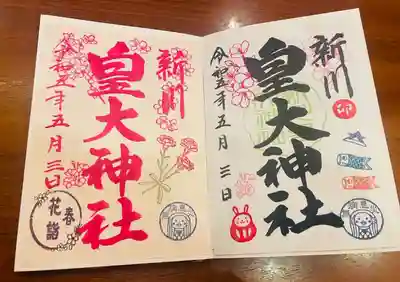 新川
皇大神社
令和五年五月三日
春
花詣
新川
皇大神社
令和五年五月三日